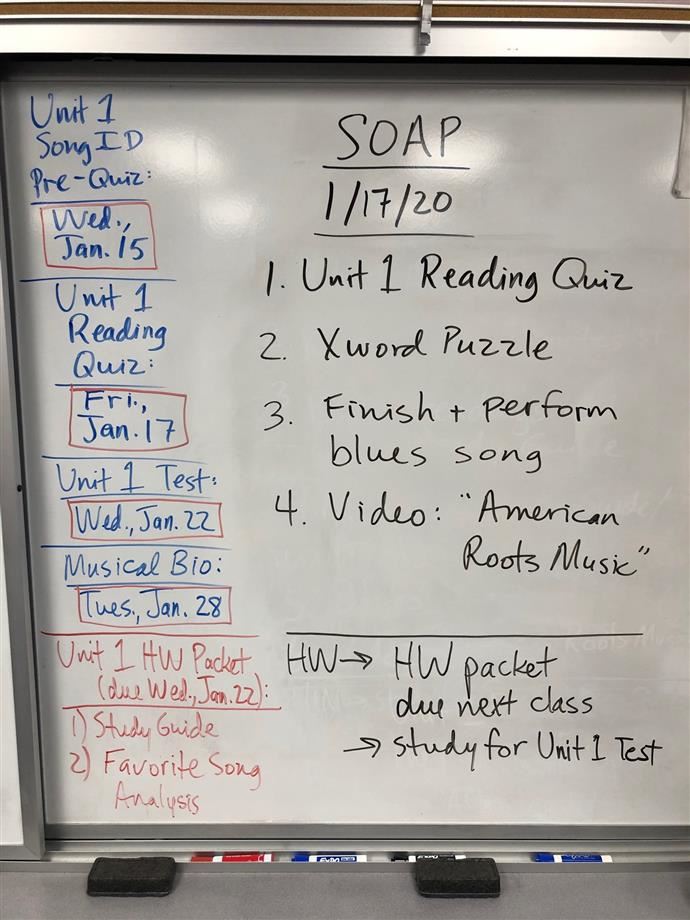 Unit 1
Song ID
Pre-Quiz:
Wed.,
Jan. 15
Unit 1
Reading
Quiz:
Fri.,
Jan. 17
Unit 1 Test:
Wed., Jan. 22
Musical Bio:
Tues., Jan. 28
Unit 1 HW Packet
(due Wed., Jan. 22):
1) Study Guide
2) Favorite Song
Analysis
SOAP
1/17/20
1. Unit 1 Reading Quiz
2. Xword Puzzle
3. Finish + perform
blues song
4. Video: "American
Roots Music"
HW → HW packet
due next class
→ study for Unit 1 Test